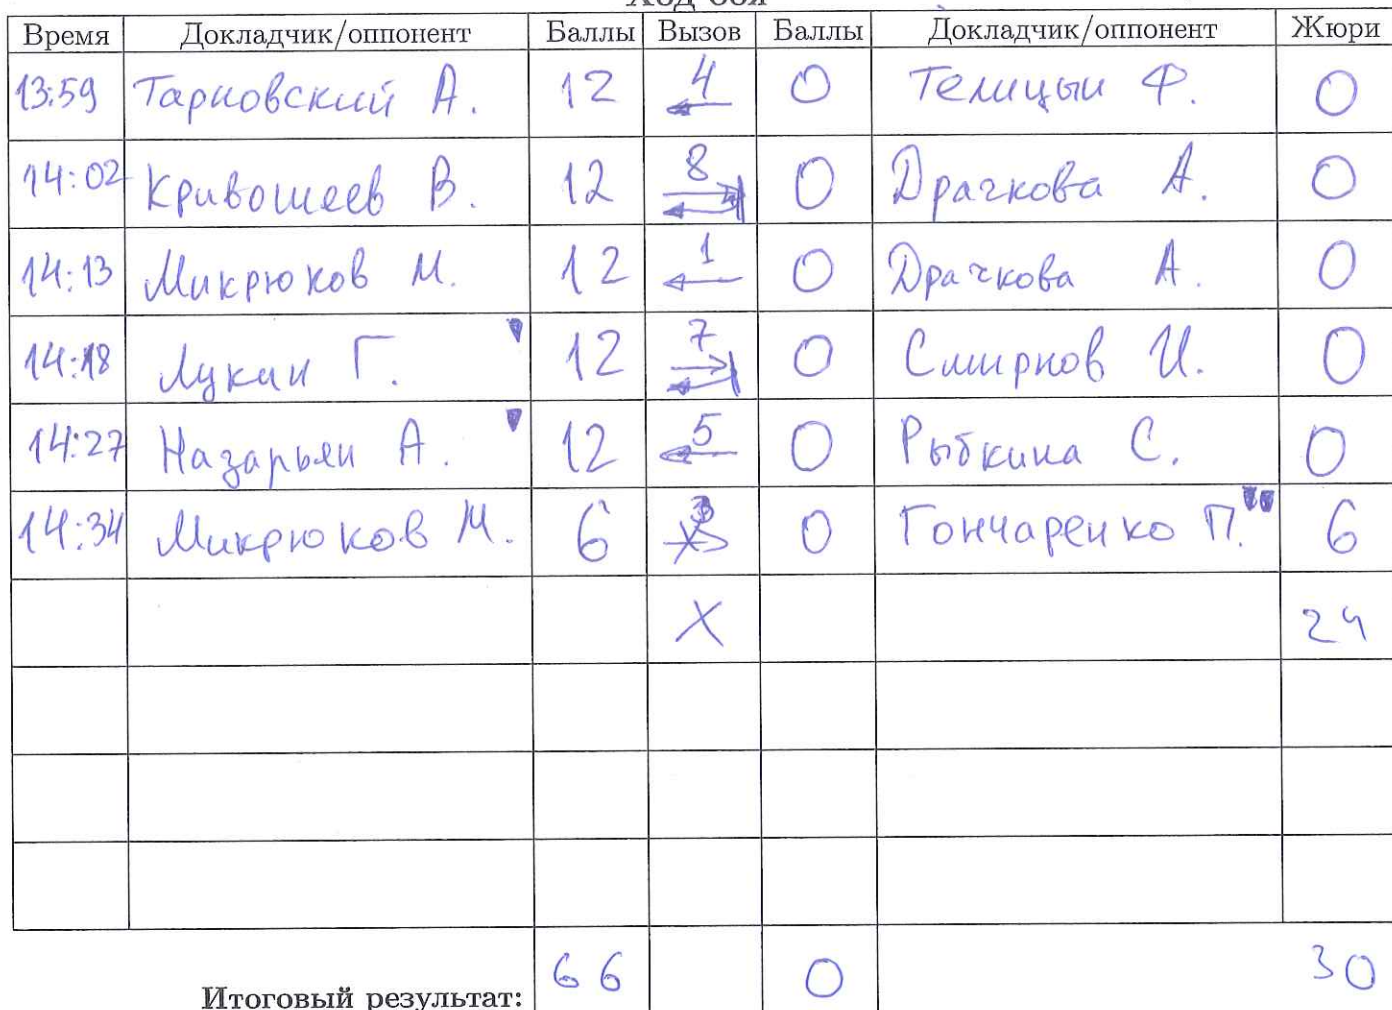 Ход боя
Время Докладчик/оппонент Баллы Вызов Баллы Докладчик/оппонент Жюри
13:59 Тарновский А. 12 4 0 Телицын Ф. 0
14:02 Кривошеев В. 12 8 0 Драчкова А. 0
14:13 Микрюков М. 12 1 0 Драчкова А. 0
14:18 Лукин Г. 12 7 0 Смирнов И. 0
14:27 Назарьян А. 12 5 0 Рыбкина С. 0
14:34 Микрюков М. 6 3 0 Гончаренко П. 6
X 24
Итоговый результат: 66 0 30